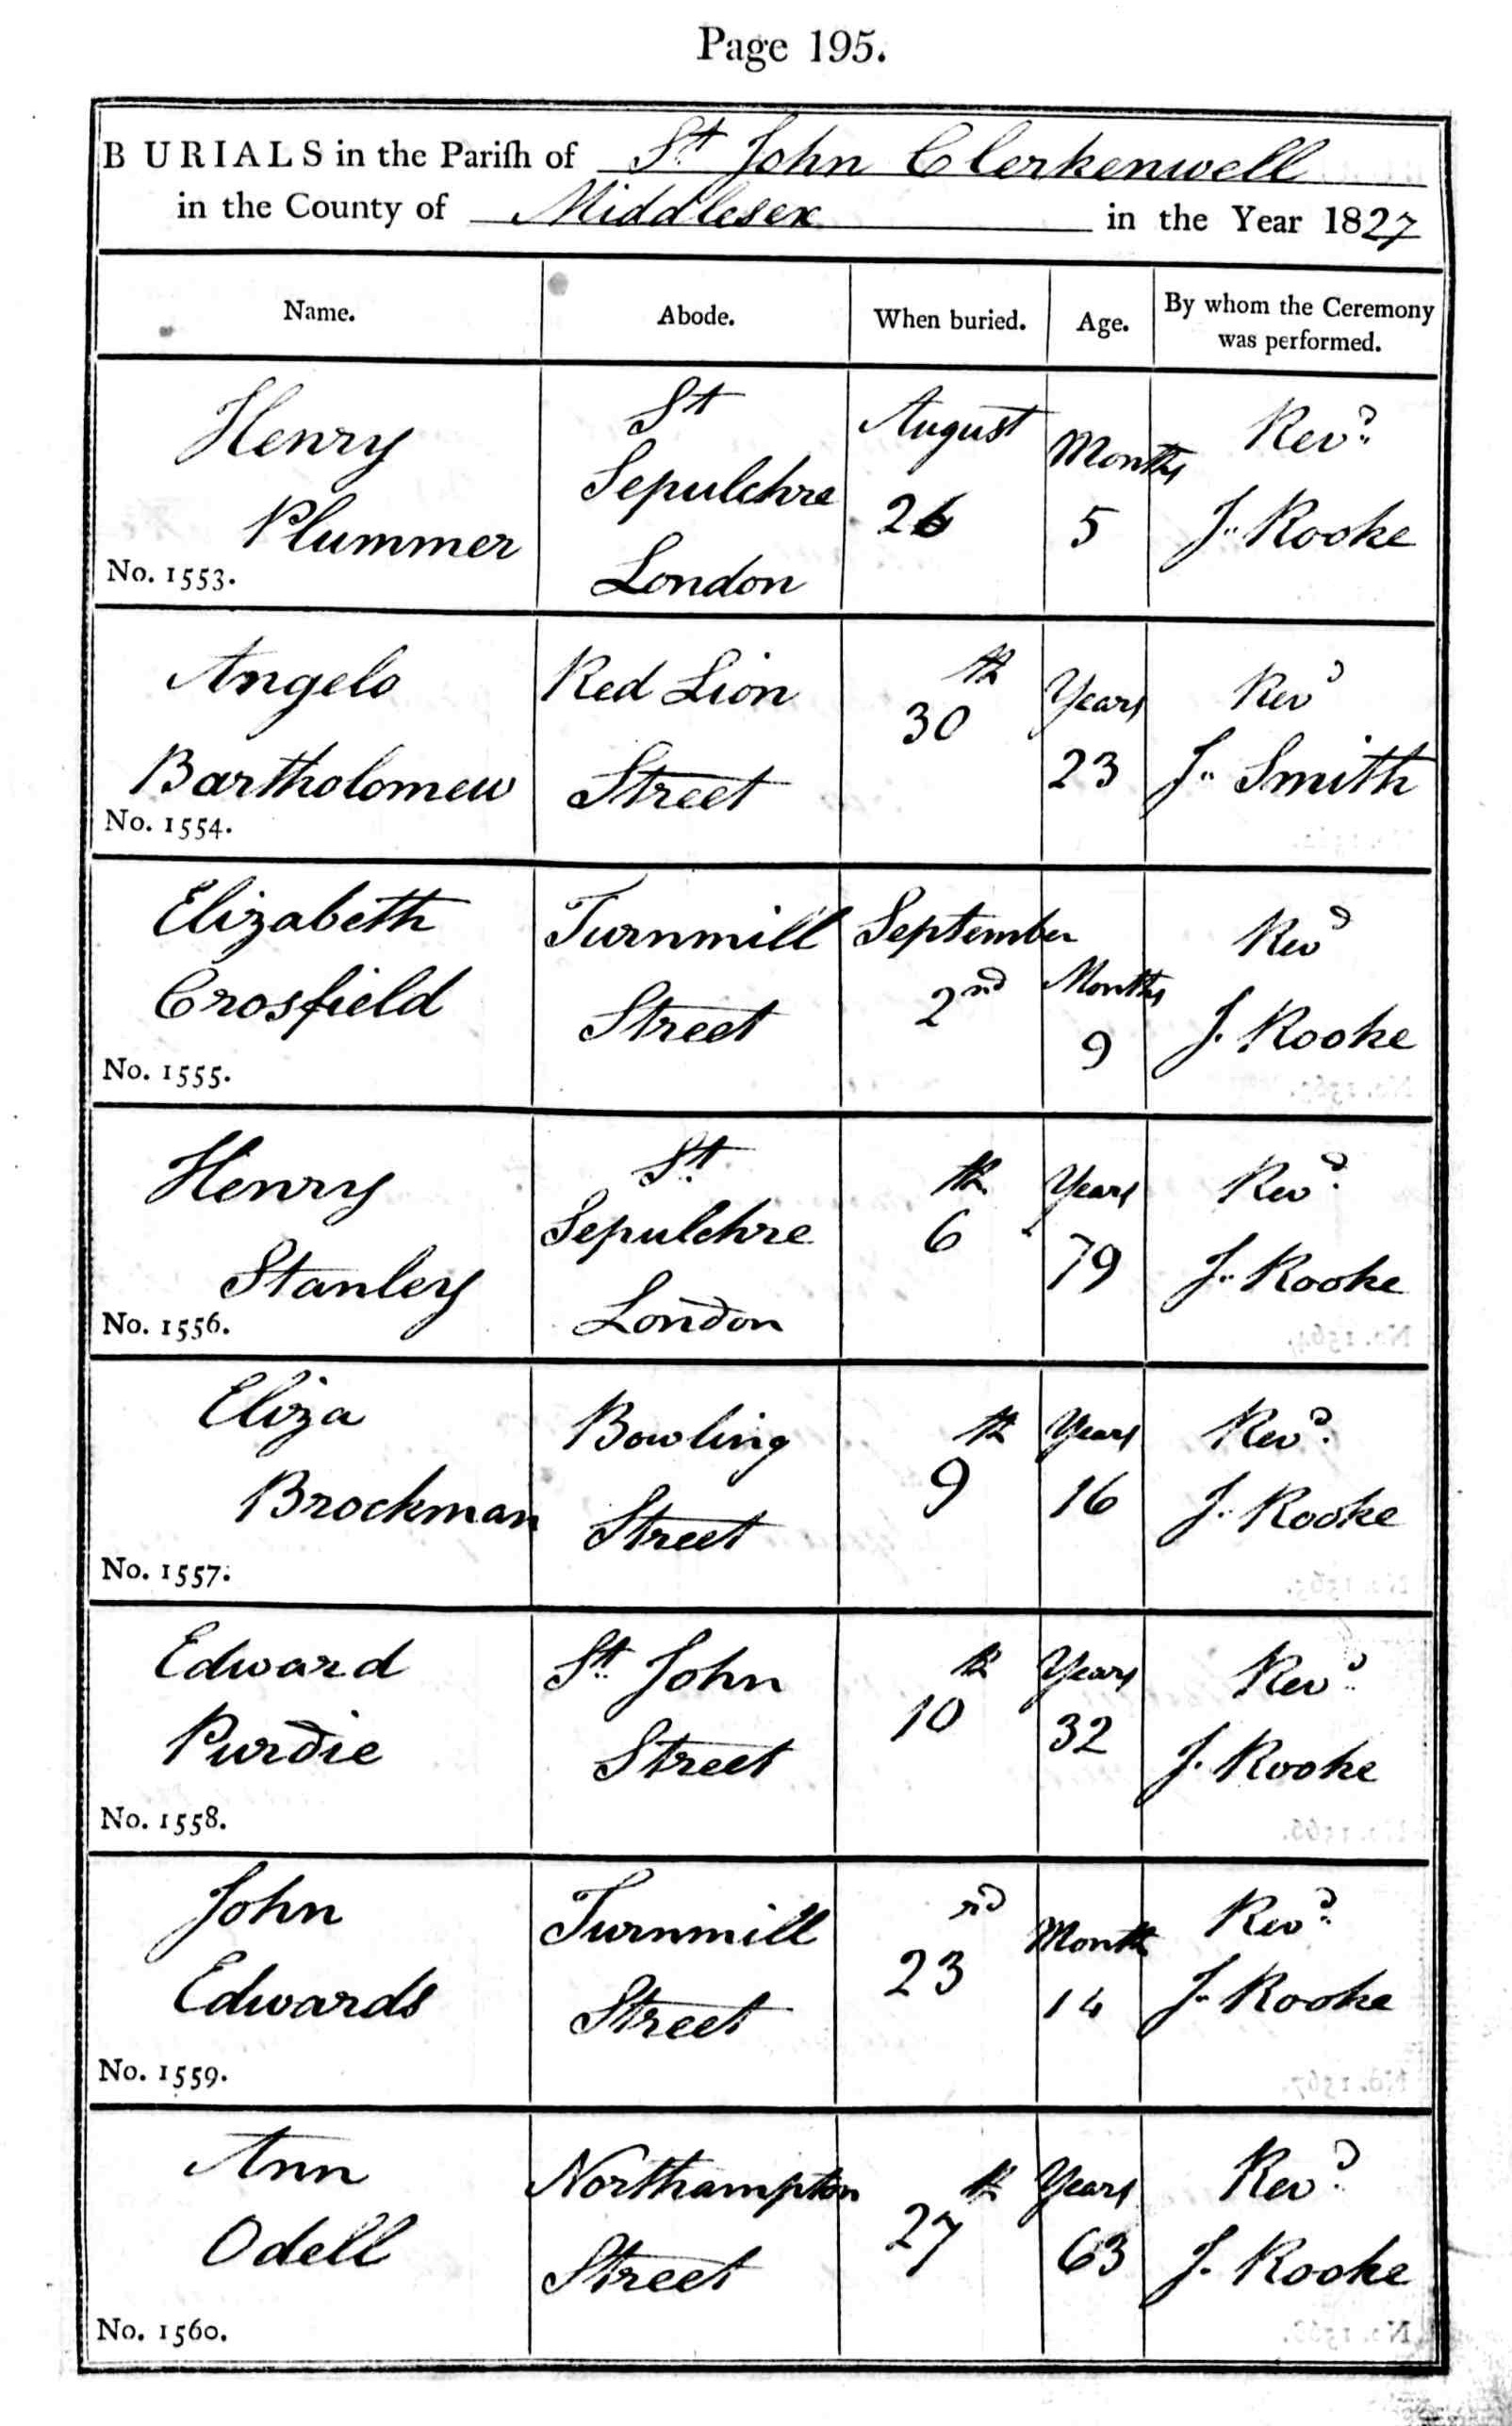 Page 195.
BURIALS in the Pariſh of St John Clerkenwell
in the County of Middlesex in the Year 1827
Name. Abode. When buried. Age. By whom the Ceremony was performed.
Henry St August Months Revd
Plummer Sepulchre 26 5 J. Rooke
No. 1553. London
Angelo Red Lion th Years Revd
Bartholomew Street 30 23 J. Smith
No. 1554.
Elizabeth Turnmill September Months Revd
Crosfield Street 2nd 9 J. Rooke
No. 1555.
Henry St th Years Revd
Stanley Sepulchre 6 79 J. Rooke
No. 1556. London
Eliza Bowling th Years Revd
Brockman Street 9 16 J. Rooke
No. 1557.
Edward St John th Years Revd
Purdie Street 10 32 J. Rooke
No. 1558.
John Turnmill nd Month Revd
Edwards Street 23 14 J. Rooke
No. 1559.
Ann Northampton th Years Revd
Odell Street 27 63 J. Rooke
No. 1560.